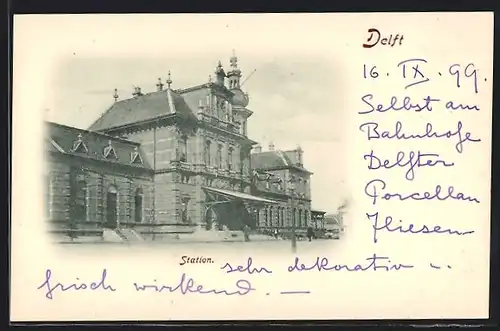 Delft
16. IX. 99.
Selbst am
Bahnhofe
Delfter
Porcellan
Fliesen
Station.
sehr dekorativ
frisch wirkend. —